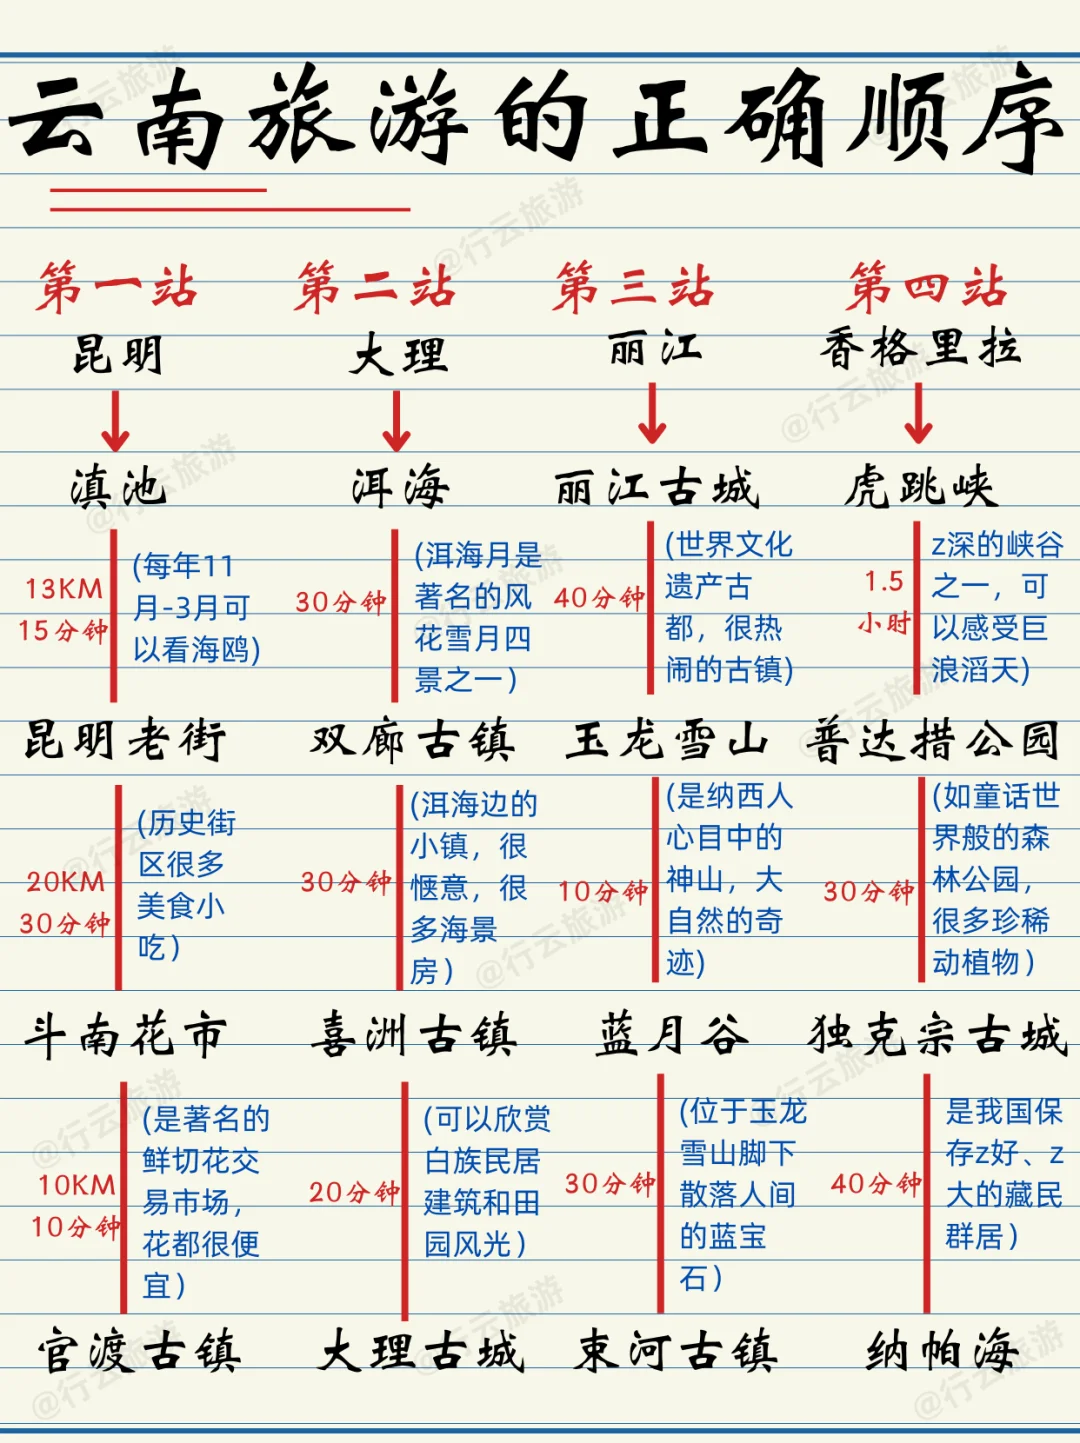 云南旅游的正确顺序
第一站
昆明
滇池
13KM
15分钟
(每年11
月-3月可
以看海鸥)
昆明老街
20KM
30分钟
(历史街
区很多
美食小
吃)
斗南花市
10KM
10分钟
(是著名的
鲜切花交
易市场，
花都很便
宜)
官渡古镇
第二站
大理
洱海
30分钟
(洱海月是
著名的风
花雪月四
景之一)
双廊古镇
30分钟
(洱海边的
小镇，很
惬意，很
多海景
房)
喜洲古镇
20分钟
(可以欣赏
白族民居
建筑和田
园风光)
大理古城
第三站
丽江
丽江古城
40分钟
(世界文化
遗产古
都，很热
闹的古镇)
玉龙雪山
10分钟
(是纳西人
心目中的
神山，大
自然的奇
迹)
蓝月谷
30分钟
(位于玉龙
雪山脚下
散落人间
的蓝宝
石)
束河古镇
第四站
香格里拉
虎跳峡
1.5
小时
z深的峡谷
之一，可
以感受巨
浪滔天)
普达措公园
30分钟
(如童话世
界般的森
林公园，
很多珍稀
动植物)
独克宗古城
40分钟
是我国保
存z好、z
大的藏民
群居)
纳帕海
@行云旅游
@行云旅游
@行云旅游
@行云旅游
@行云旅游
@行云旅游
@行云旅游
@行云旅游
@行云旅游
@行云旅游
@行云旅游
@行云旅游
@行云旅游
@行云旅游